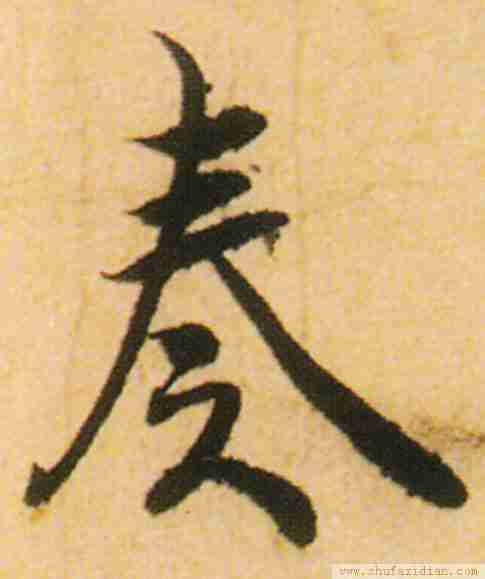 奏
www.shufazidian.com